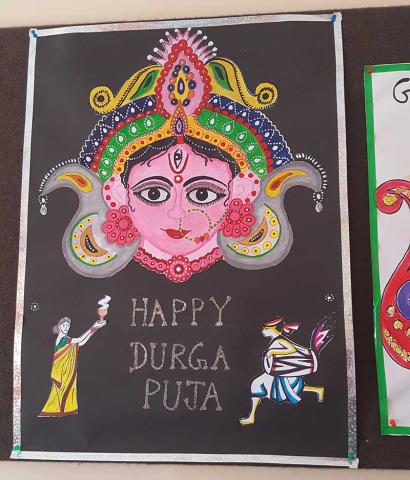 HAPPY
DURGA
PUJA